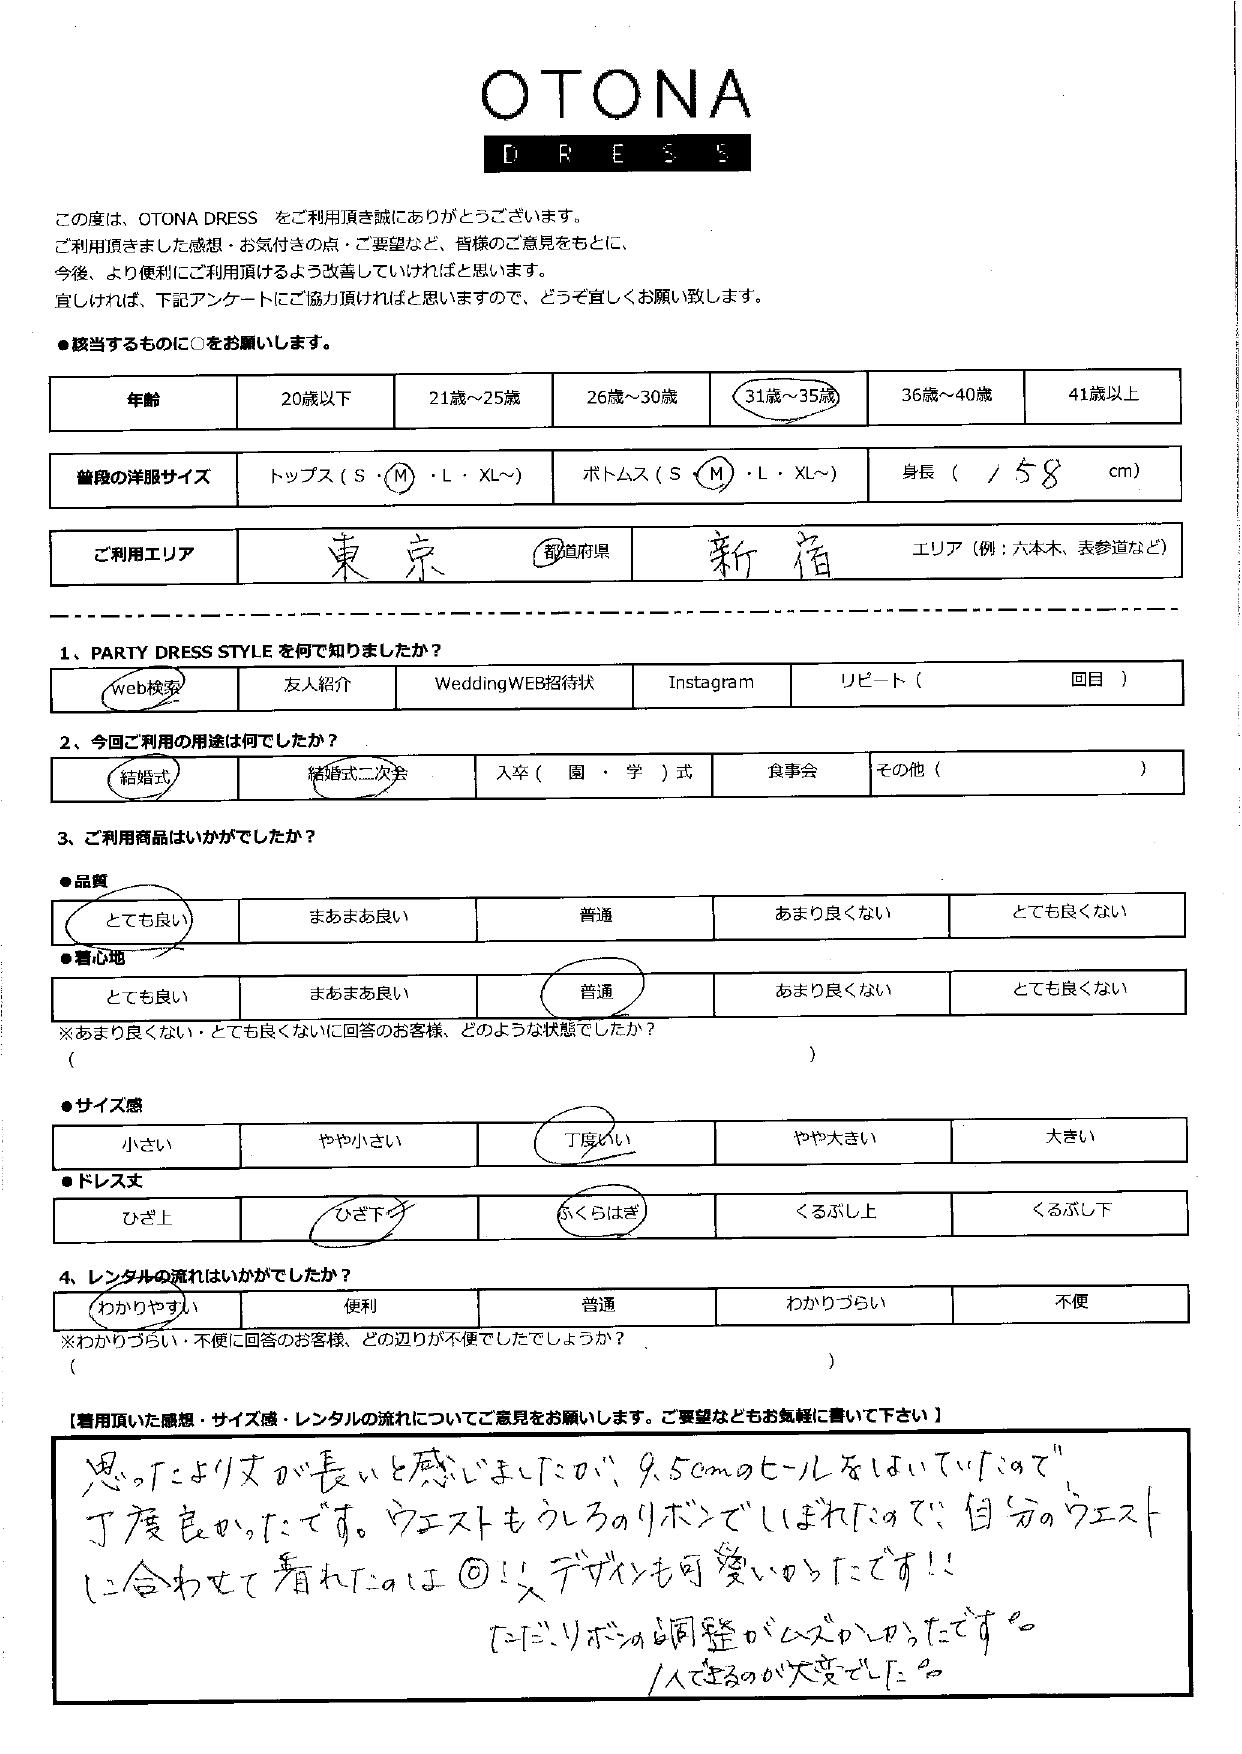 OTONA
DRESS
この度は、OTONA DRESS　をご利用頂き誠にありがとうございます。
ご利用頂きました感想・お気付きの点・ご要望など、皆様のご意見をもとに、
今後、より便利にご利用頂けるよう改善していければと思います。
宜しければ、下記アンケートにご協力頂ければと思いますので、どうぞ宜しくお願い致します。
●該当するものに○をお願いします。
年齢 20歳以下 21歳～25歳 26歳～30歳 31歳～35歳 36歳～40歳 41歳以上
普段の洋服サイズ トップス ( S ・ M ・ L ・ XL～) ボトムス ( S ・ M ・ L ・ XL～) 身長 ( 158 cm)
ご利用エリア 東京 都道府県 新宿 エリア（例：六本木、表参道など）
1、PARTY DRESS STYLE を何で知りましたか？
web検索 友人紹介 WeddingWEB招待状 Instagram リピート（ 回目 ）
2、今回ご利用の用途は何でしたか？
結婚式 結婚式二次会 入卒 ( 園 ・ 学 ) 式 食事会 その他 ( )
3、ご利用商品はいかがでしたか？
●品質
とても良い まあまあ良い 普通 あまり良くない とても良くない
●着心地
とても良い まあまあ良い 普通 あまり良くない とても良くない
※あまり良くない・とても良くないに回答のお客様、どのような状態でしたか？
( )
●サイズ感
小さい やや小さい 丁度いい やや大きい 大きい
●ドレス丈
ひざ上 ひざ下 ふくらはぎ くるぶし上 くるぶし下
4、レンタルの流れはいかがでしたか？
わかりやすい 便利 普通 わかりづらい 不便
※わかりづらい・不便に回答のお客様、どの辺りが不便でしたでしょうか？
( )
【着用頂いた感想・サイズ感・レンタルの流れについてご意見をお願いします。ご要望などもお気軽に書いて下さい 】
思ったより丈が長いと感じましたが、9.5cmのヒールをはいていたので、
丁度良かったです。ウエストもうしろのリボンでしばれたので、自分のウエスト
に合わせて着れたのは◎!! デザインも可愛いかったです!!
ただ、リボンの調整がムズかしかったです。
1人でするのが大変でした。